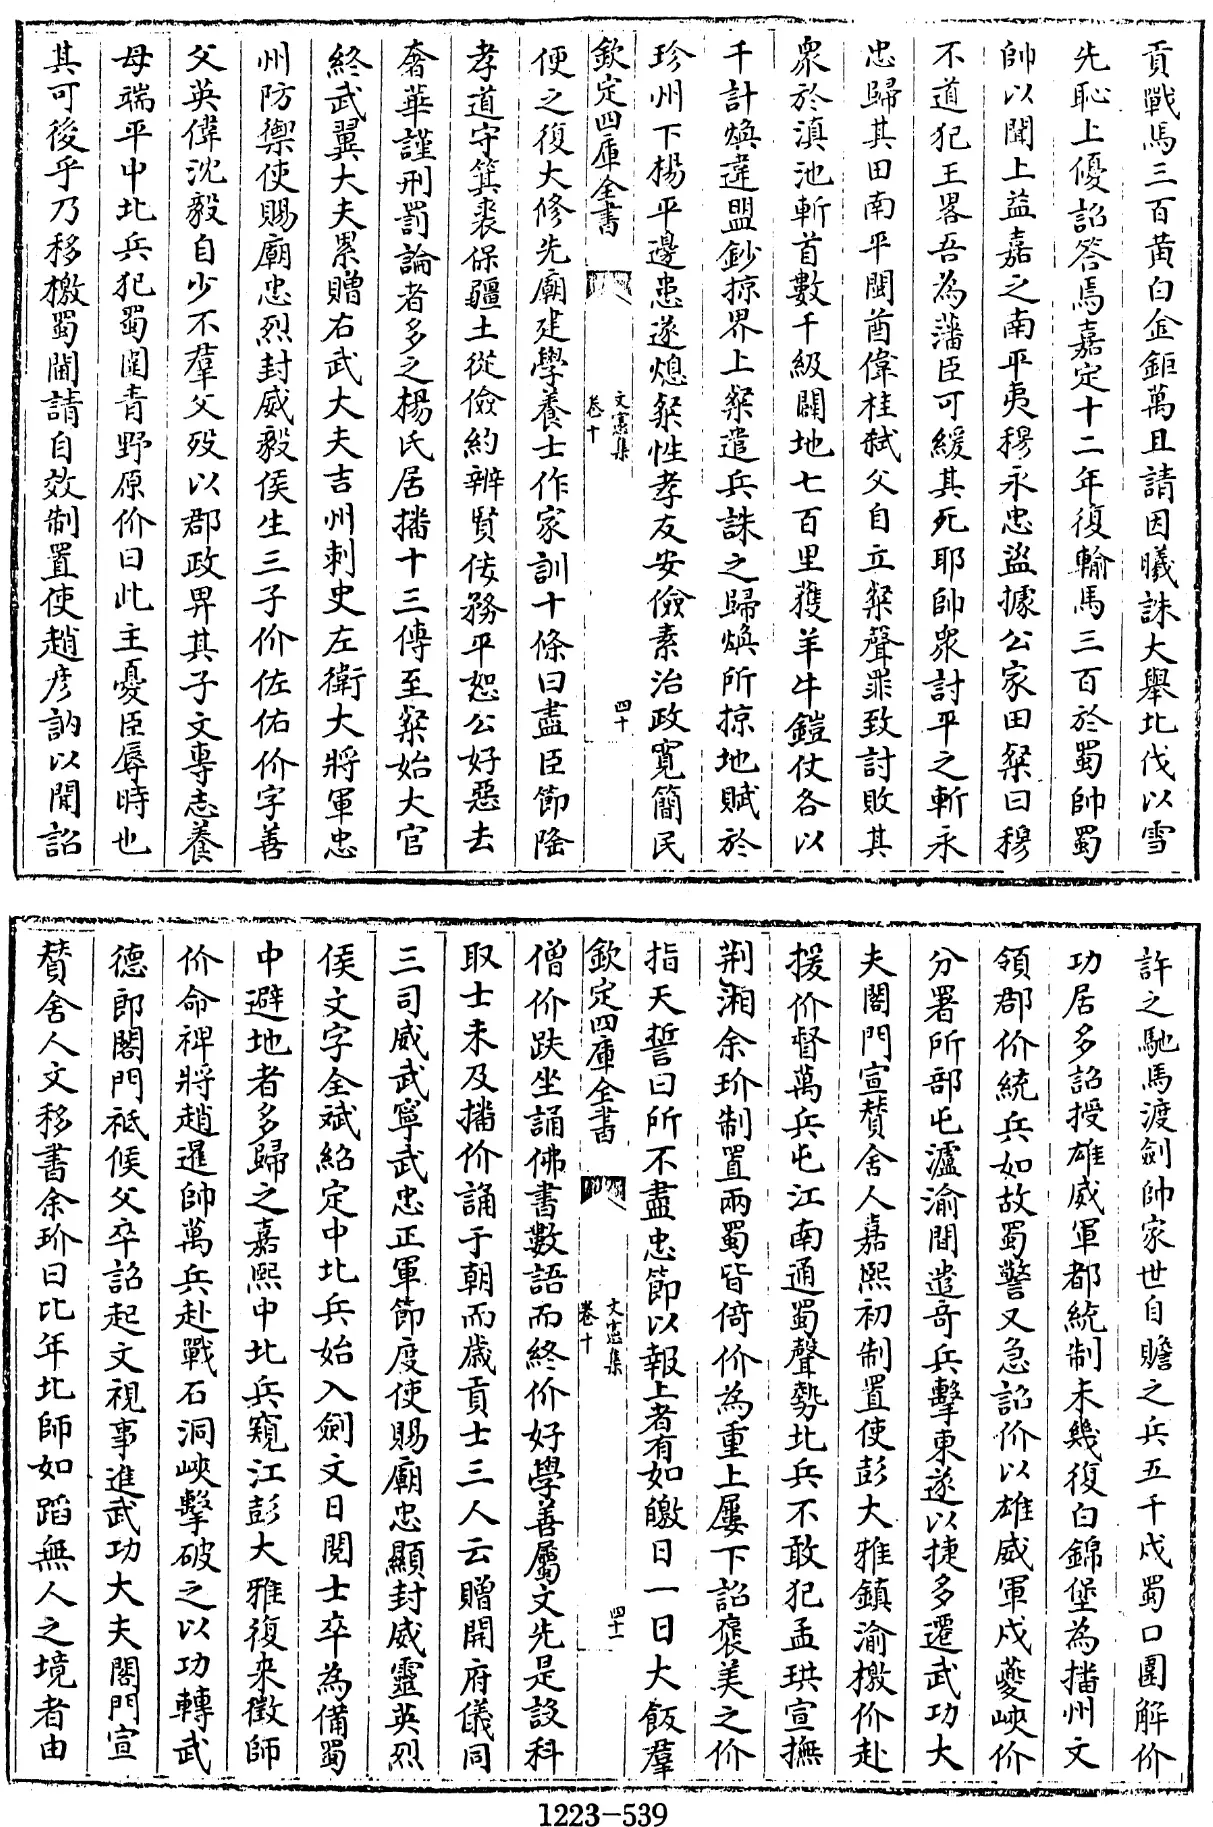 貢戰馬三百黄白金鉅萬且請因曦誅大舉北伐以雪
先恥上優詔答焉嘉定十二年復輸馬三百於蜀帥蜀
帥以聞上益嘉之南平夷穆永忠盜據公家田粲曰穆
不道犯王畧吾為藩臣可緩其死耶帥衆討平之斬永
忠歸其田南平閩酋偉桂弑父自立粲聲罪致討敗其
衆於滇池斬首數千級闢地七百里獲羊牛鎧仗各以
千計煥違盟鈔掠界上粲遣兵誅之歸煥所掠地賦於
珍州下楊平邊患遂熄粲性孝友安儉素治政寛簡民
欽定四庫全書
文憲集
卷十
四十
便之復大修先廟建學養士作家訓十條曰盡臣節隆
孝道守箕裘保疆土從儉約辨賢佞務平恕公好惡去
奢華謹刑罰論者多之楊氏居播十三傳至粲始大官
終武翼大夫累贈右武大夫吉州刺史左衛大將軍忠
州防禦使賜廟忠烈封威毅侯生三子价佐佑价字善
父英偉沈毅自少不羣父殁以郡政畀其子文專志養
母端平中北兵犯蜀圍青野原价曰此主憂臣辱時也
其可後乎乃移檄蜀閫請自效制置使趙彦訥以聞詔
許之馳馬渡劍帥家世自贍之兵五千戍蜀口圍解价
功居多詔授雄威軍都統制未幾復白錦堡為播州文
領郡价統兵如故蜀警又急詔价以雄威軍戍夔峽价
分署所部屯瀘渝間遣竒兵擊東遂以捷多遷武功大
夫閤門宣賛舍人嘉熙初制置使彭大雅鎮渝檄价赴
援价督萬兵屯江南通蜀聲勢北兵不敢犯孟珙宣撫
荆湘余玠制置兩蜀皆倚价為重上屢下詔褒美之价
指天誓曰所不盡忠節以報上者有如皦日一日大飯羣
欽定四庫全書
文憲集
卷十
四十一
僧价趺坐誦佛書數語而終价好學善屬文先是設科
取士未及播价請于朝而歲貢士三人云贈開府儀同
三司威武寧武忠正軍節度使賜廟忠顯封威靈英烈
侯文字全斌紹定中北兵始入劍文日閲士卒為備蜀
中避地者多歸之嘉熙中北兵窺江彭大雅復來徵師
价命裨將趙暹帥萬兵赴戰石洞峽擊破之以功轉武
德郎閤門祗候父卒詔起文視事進武功大夫閤門宣
賛舍人文移書余玠曰比年北師如蹈無人之境者由
1223-539